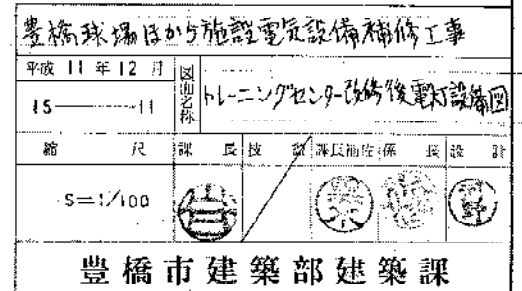 豊橋球場ほか5施設電気設備補修工事
平成 11 年 12 月
図面名称
トレーニングセンター改修後電灯設備図
15 ―― 11
縮 尺
課 長
技
課長補佐
係 長
設 計
S=1/100
豊橋市建築部建築課